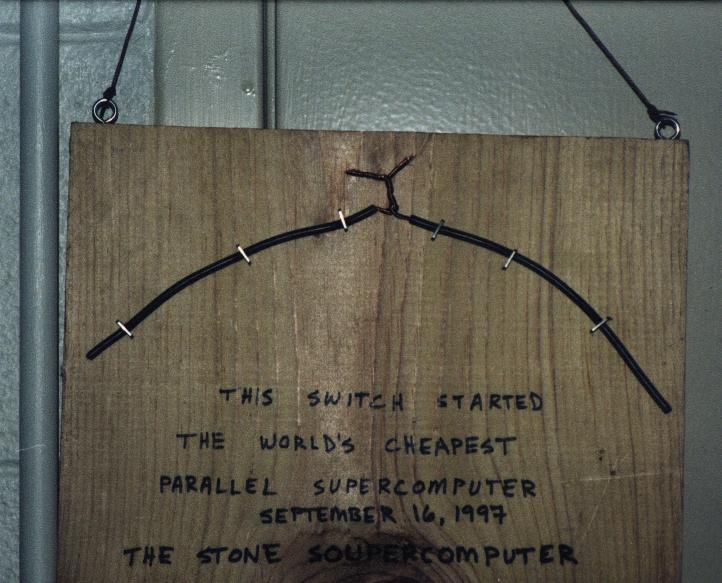 THIS SWITCH STARTED
THE WORLD'S CHEAPEST
PARALLEL SUPERCOMPUTER
SEPTEMBER 16, 1997
THE STONE SOUPERCOMPUTER